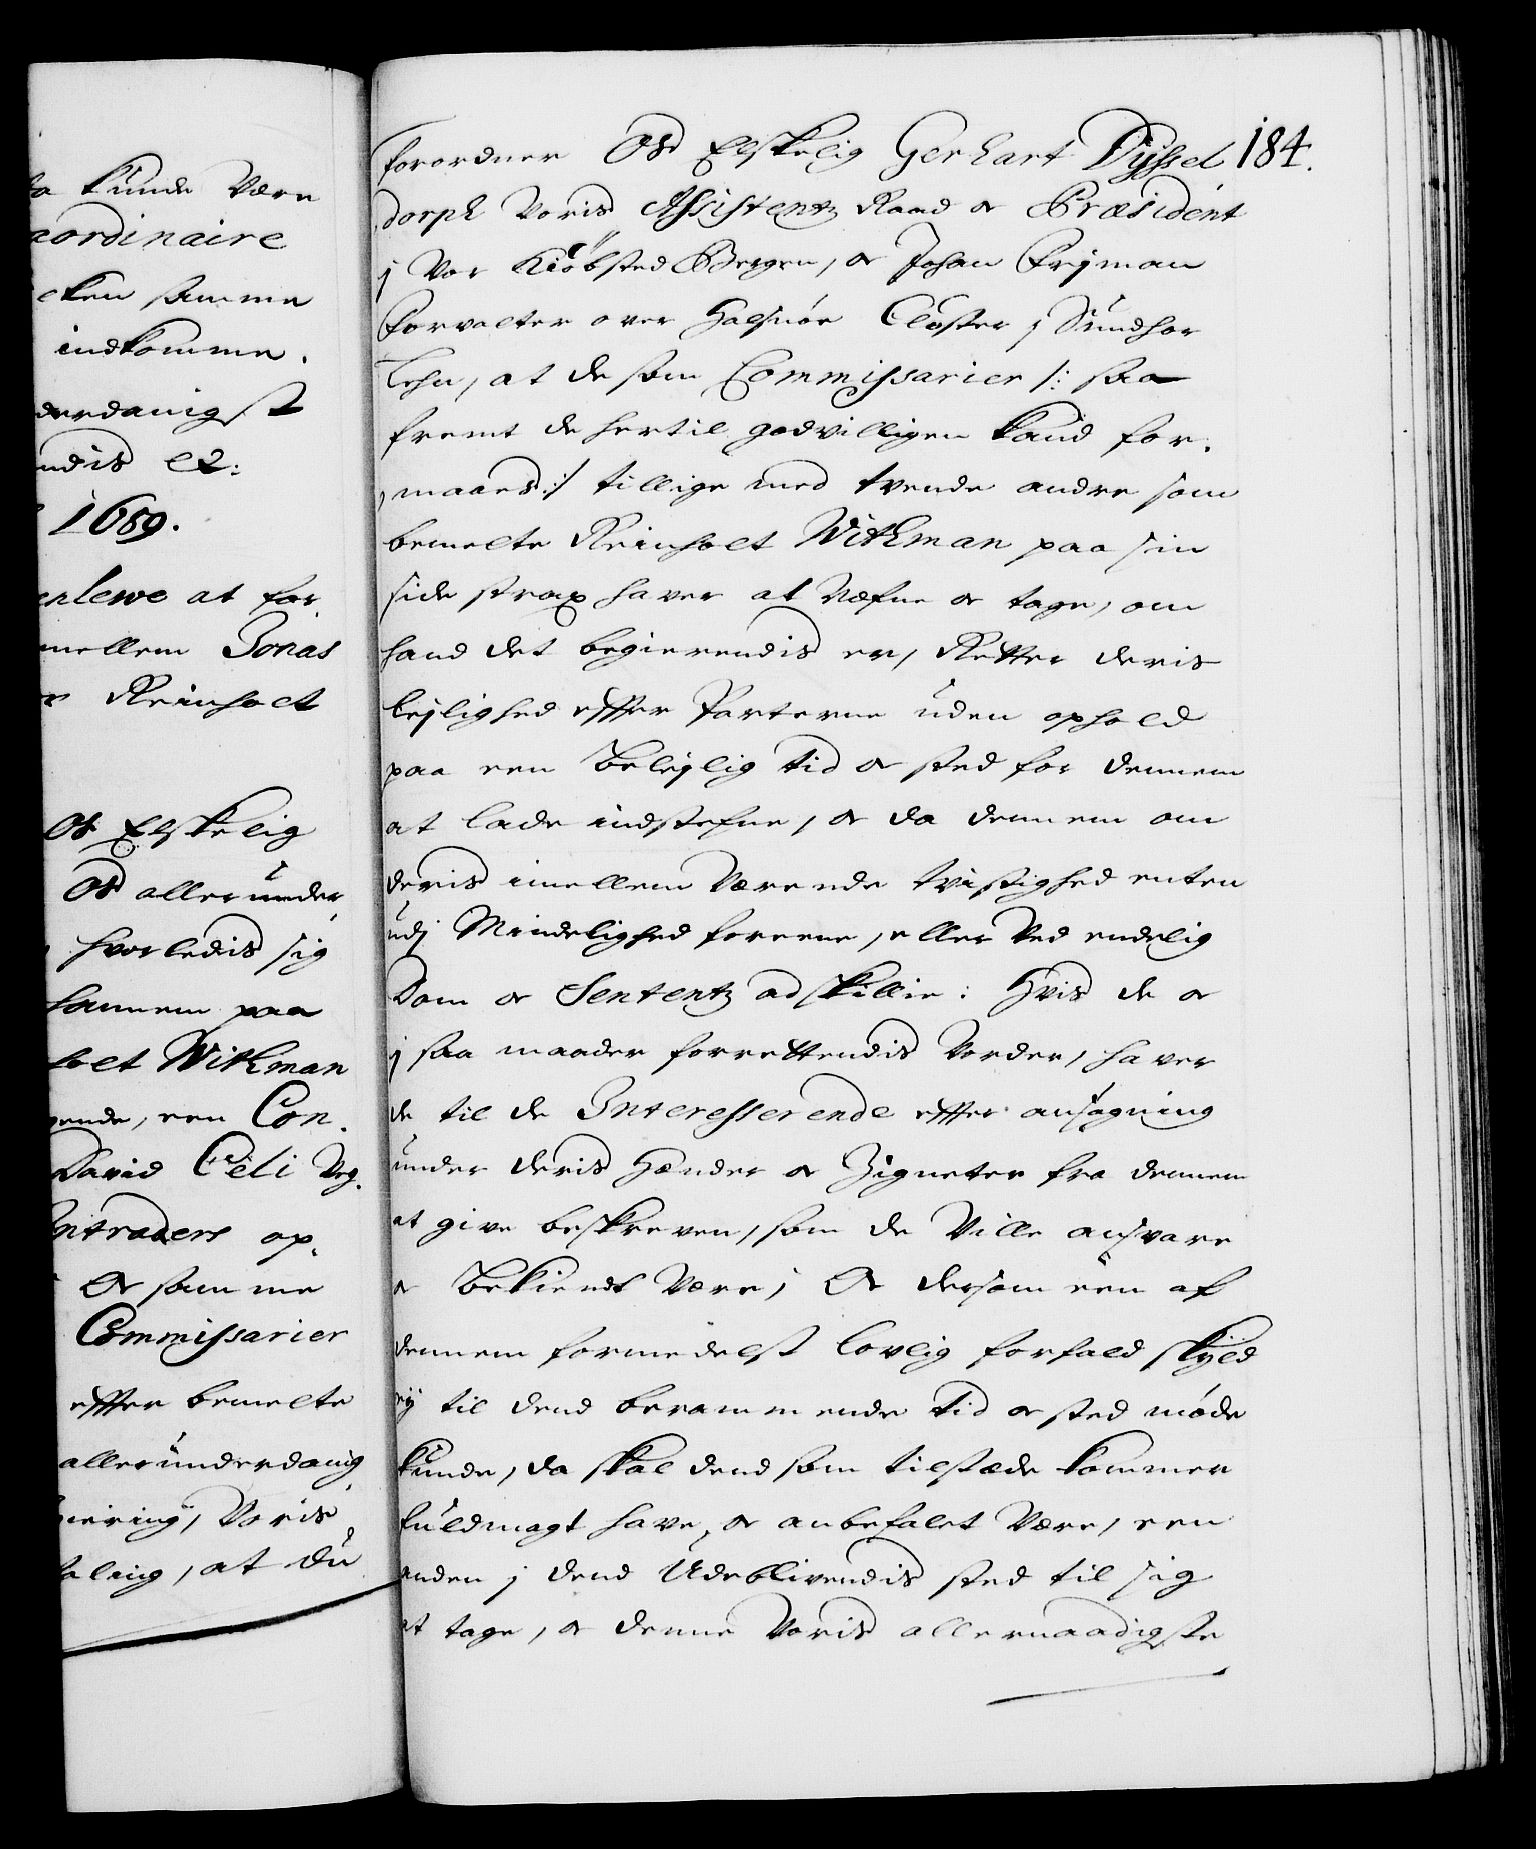 da kunde Være
aordinaire
cken samme
indkomme.
derdanigst
ndis etc:
1689.
enlewe at for
mellem Jonas
Reinholt
Os Elskelig
Os allerunder,
hvorledis sig
hannem paa
holt Withman
gende, een Con,
David Celi
Intraders op,
Og samme
Commissarier
effter bemelte
allerunderdanig,
giering, Voris
faling, at du
184.
forordner Os Elskelig Gerhart Dyssel
dorph Voris Assistentz Raad og Præsident
j Vor Kiøbsted Bergen, og Johan Fryman
Forvalter over Halsnøe Closter j Sundhor
Lehn, at de som Commissarier /: saa
fremt de hertil godvilligen kand for,
maaes :/ tillige med tvende andre som
bemelte Reinholt Withman paa sin
side strax haver at Næfne og tage, om
hand det begierendis er, Retter deris
leylighed effter Parterne uden ophold
paa een Beleylig tid og sted for dennem
at lade indstefne, og da dennem om
deris imellem Værende tvistighed enten
udj Mindelighed foreene, eller Ved endelig
Dom og Sententz adskillie: Hvis de og
j saa maader forrettendis Vorder, haver
de til de Interesserende effter ansøgning
under deris Hænder og Zigneter fra dennem
at give beskreven, som de Ville ansvare
og Bekiendt Være; Og dersom een af
dennem formedelst lovlig forfald skyld
ey til dend berammende tid og sted møde
kunde, da skal dend som tilstæde kommer
fuldmagt have, og anbefalet Være, een
anden j dend Udeblivendis sted til sig
at tage, og denne Voris allernaadigste